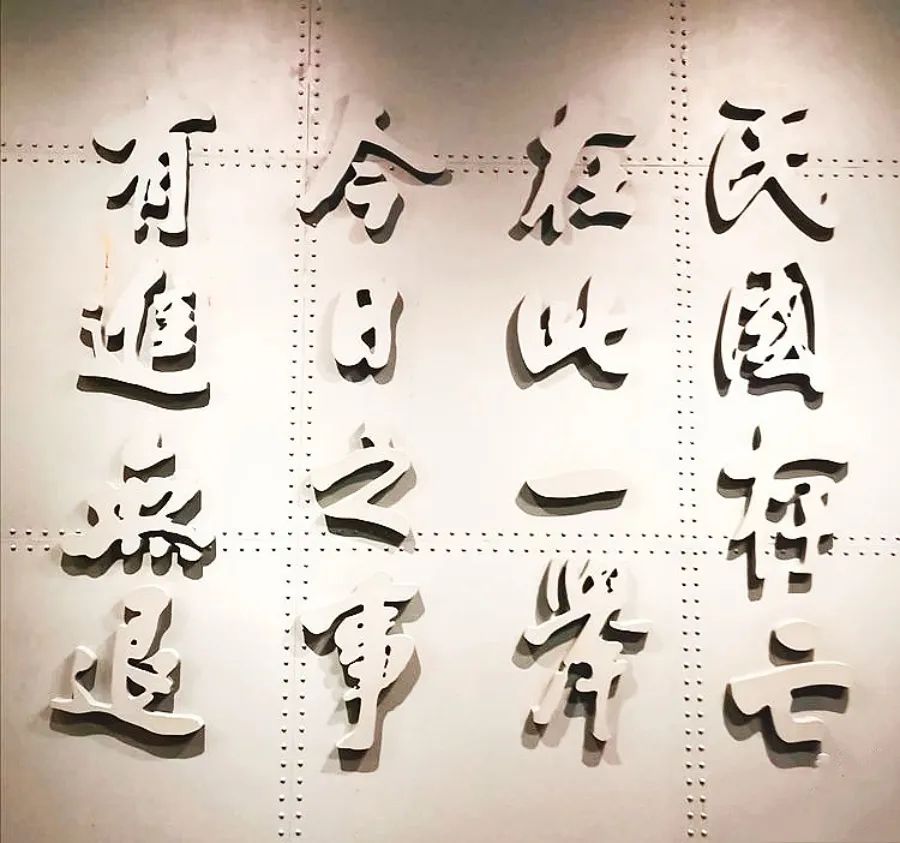 民國存亡
在此一舉
今日之事
有進無退